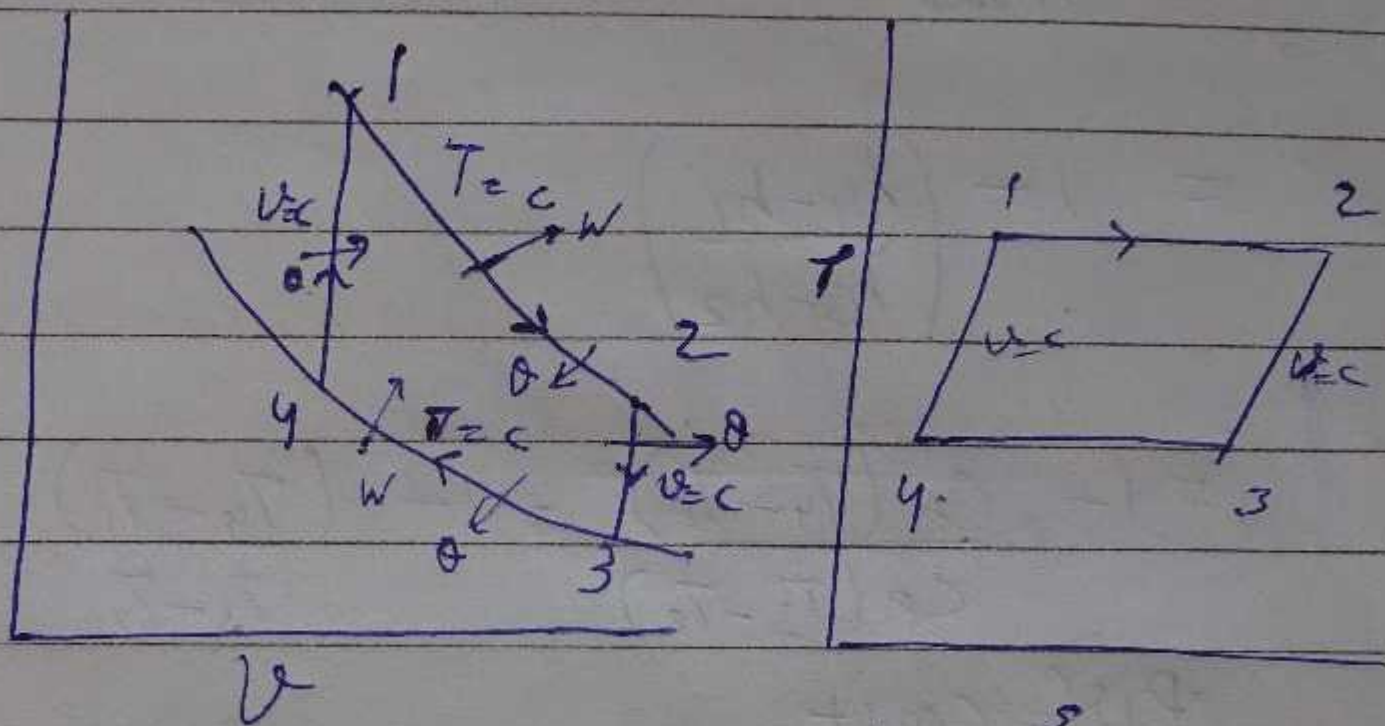 1
T = c
W
v=c
Q
2
Q
4
T = c
Q
v=c
W
Q
3
v
T
1
2
v=c
v=c
4
3
s